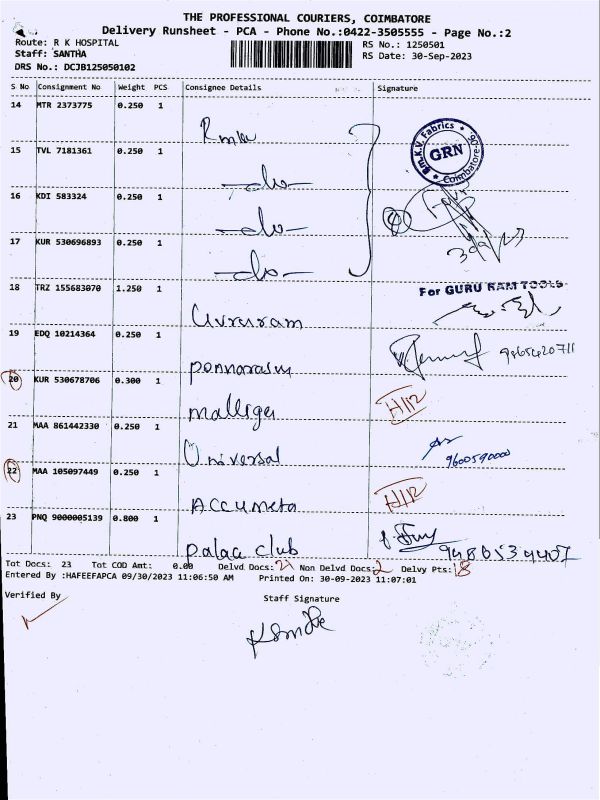 THE PROFESSIONAL COURIERS, COIMBATORE
Delivery Runsheet - PCA - Phone No.:0422-3505555 - Page No.:2
Route: R K HOSPITAL
Staff: SANTHA
DRS No.: DCJB125050102
RS No.: 1250501
RS Date: 30-Sep-2023
S No Consignment No Weight PCS Consignee Details Signature
14 MTR 2373775 0.250 1
R.m.k.V. Fabrics
GRN
Coimbatore-
15 TVL 7181361 0.250 1 -do-
16 KDI 583324 0.250 1 -do-
17 KUR 530696893 0.250 1 -do-
18 TRZ 155683070 1.250 1
For GURU RAM TOOLS
19 EDQ 10214364 0.250 1 Ponnarasu
20 KUR 530678706 0.300 1 Malliga
21 MAA 861442330 0.250 1 Universal 9600590000
22 MAA 105097449 0.250 1 Accumeta
23 PNQ 9000005139 0.800 1 Palaa club 9486534407
Tot Docs: 23 Tot COD Amt: 0.00 Delvd Docs: 21 Non Delvd Docs: 2 Delvy Pts: 18
Entered By :HAFEEFAPCA 09/30/2023 11:06:50 AM Printed On: 30-09-2023 11:07:01
Verified By Staff Signature